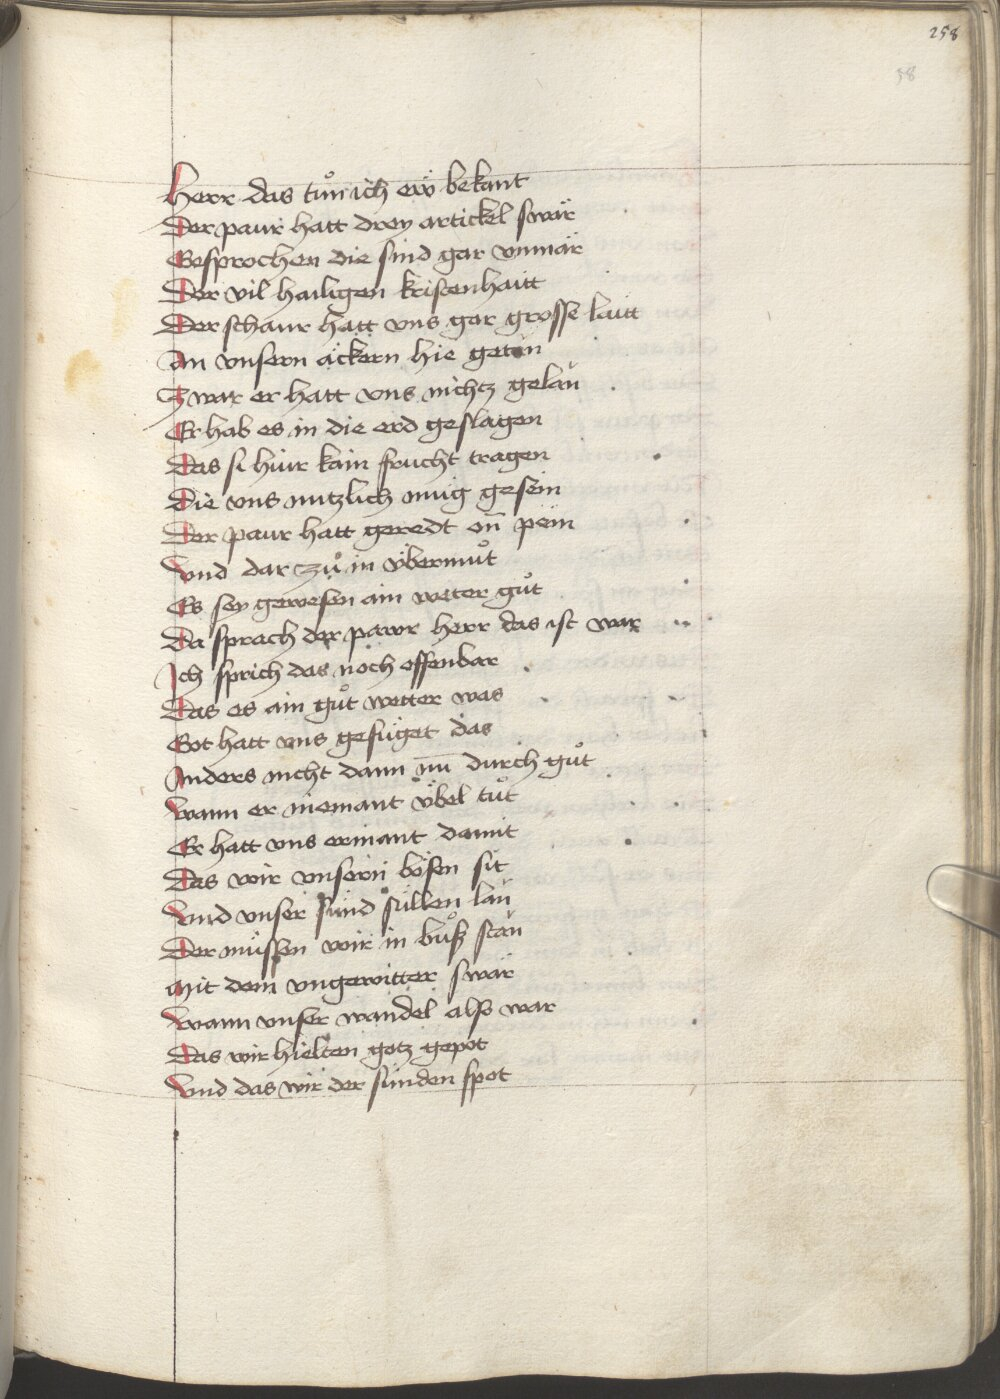 258
58
Herr das tuͦn ich eẅ bekant
Der paur hatt drey artickel swär
Gesprochen die sind gar vnmär
Der vil hailigen kristenhaitt
Der schaur hatt vns gar grosse laitt
An vnsern äckern hie getän
Zwar er hatt vns nichtz gelän
Er hab es in die erd geslagen
Das si hiur kain frucht tragen
Die vns nutzlich mug gesein
Der paur hatt geredt on pein
Vnd dar zuͦ in vbermuͦt
Es sey gewesen ain weter guͦt
Da sprach der pawr herr das ist war
Ich sprich das noch offenbar
Das es ain guͦt wetter was
Got hatt vns gefüget das
Anders nicht dann nu̅ durch guͦt
Wann er niemant vbel tuͦt
Er hatt vns ermant damit
Das wir vnsern bösen sit
Vnd vnser sünd süllen län
Der müssen wir in buͦsz stän
Mit dem vngewitter swär
Wann vnser wandel also war
Das wir hielten gotz gepot
Vnd das wir der sünden spot